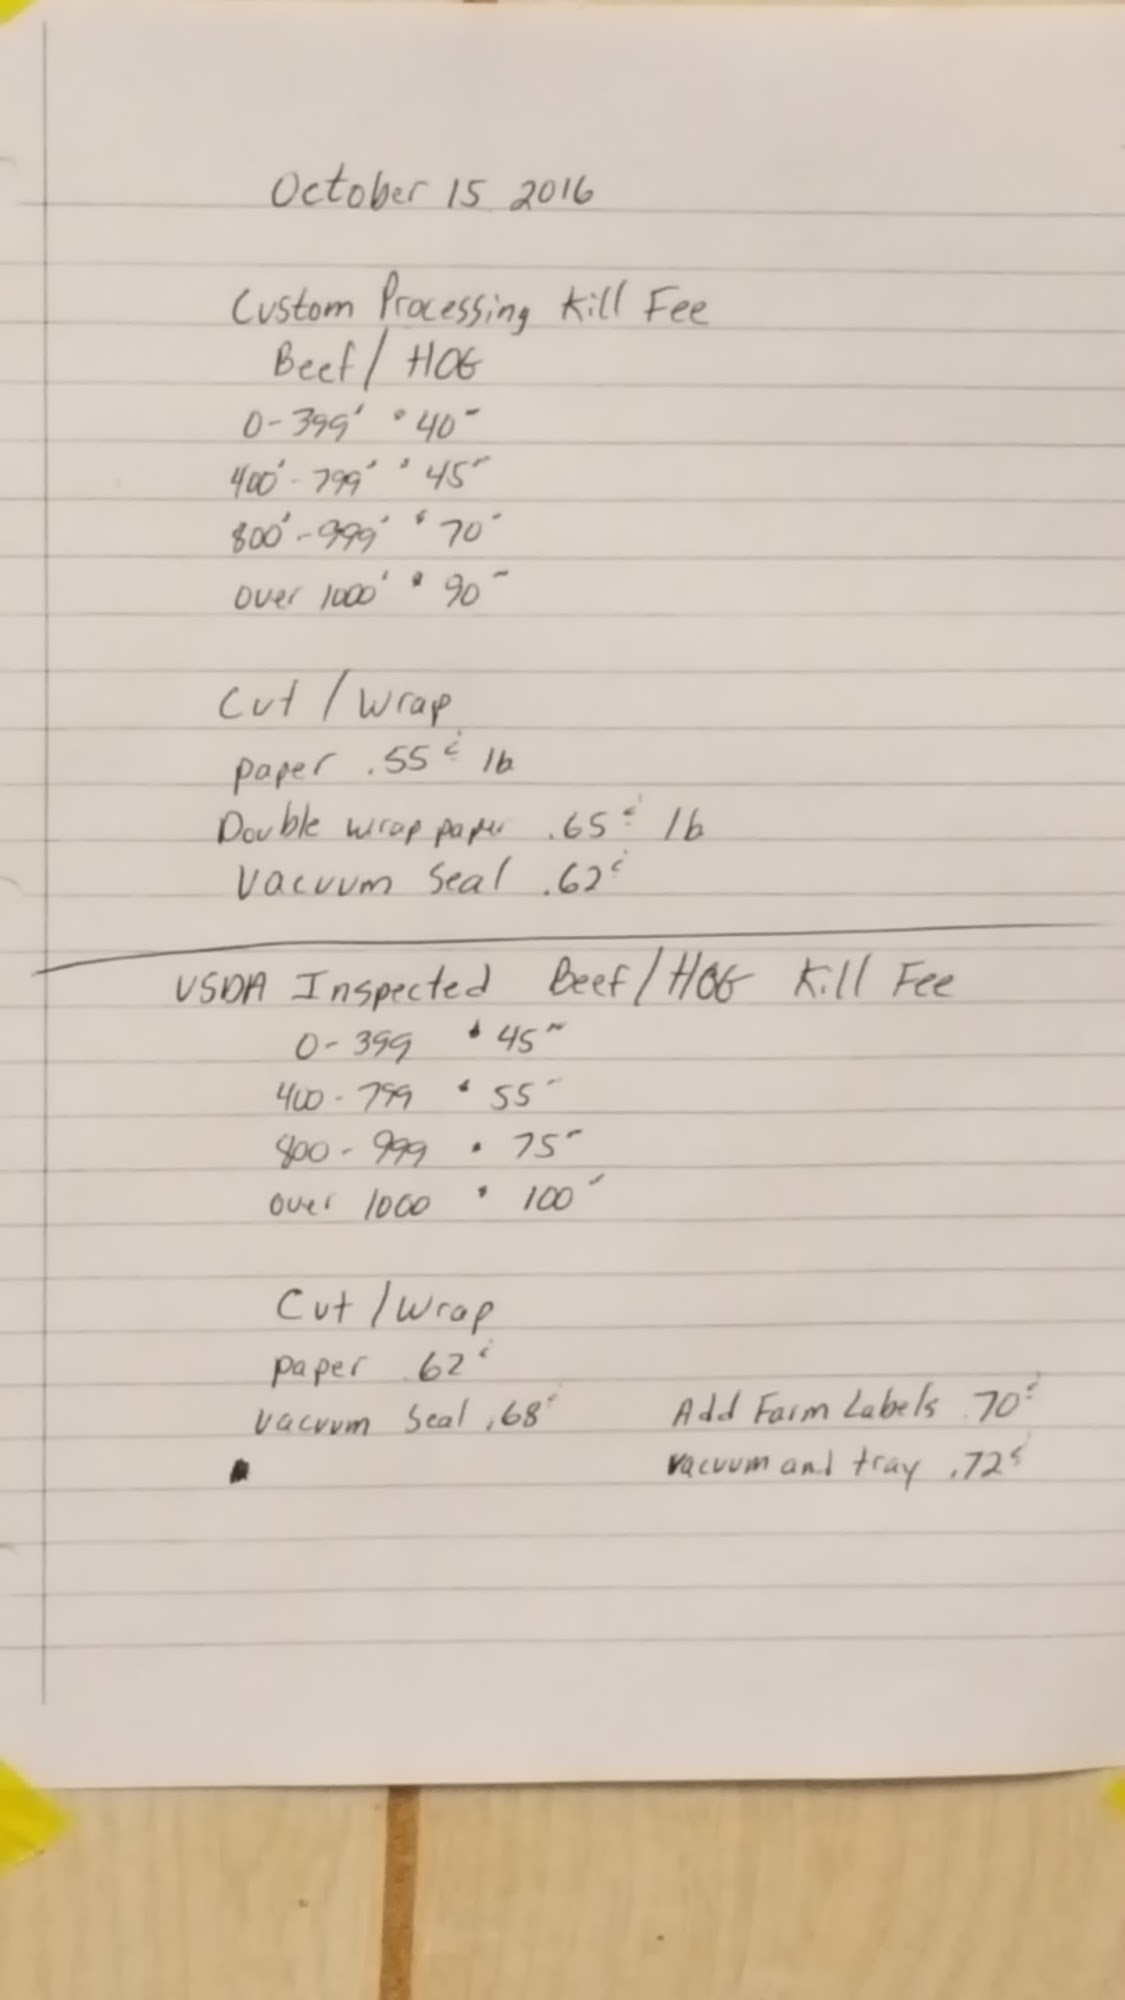 October 15 2016
Custom Processing Kill Fee
Beef / HOG
0-399' $40-
400'-799' $45-
800'-999' $70-
over 1000' $90-
Cut / Wrap
paper .55¢ lb
Double wrap paper .65¢ lb
Vacuum Seal .62¢
USDA Inspected Beef/HOG Kill Fee
0-399 $45-
400-799 $55-
800-999 $75-
over 1000 $100-
Cut / Wrap
paper .62¢
vacuum Seal .68¢ Add Farm Labels .70¢
vacuum and tray .72¢